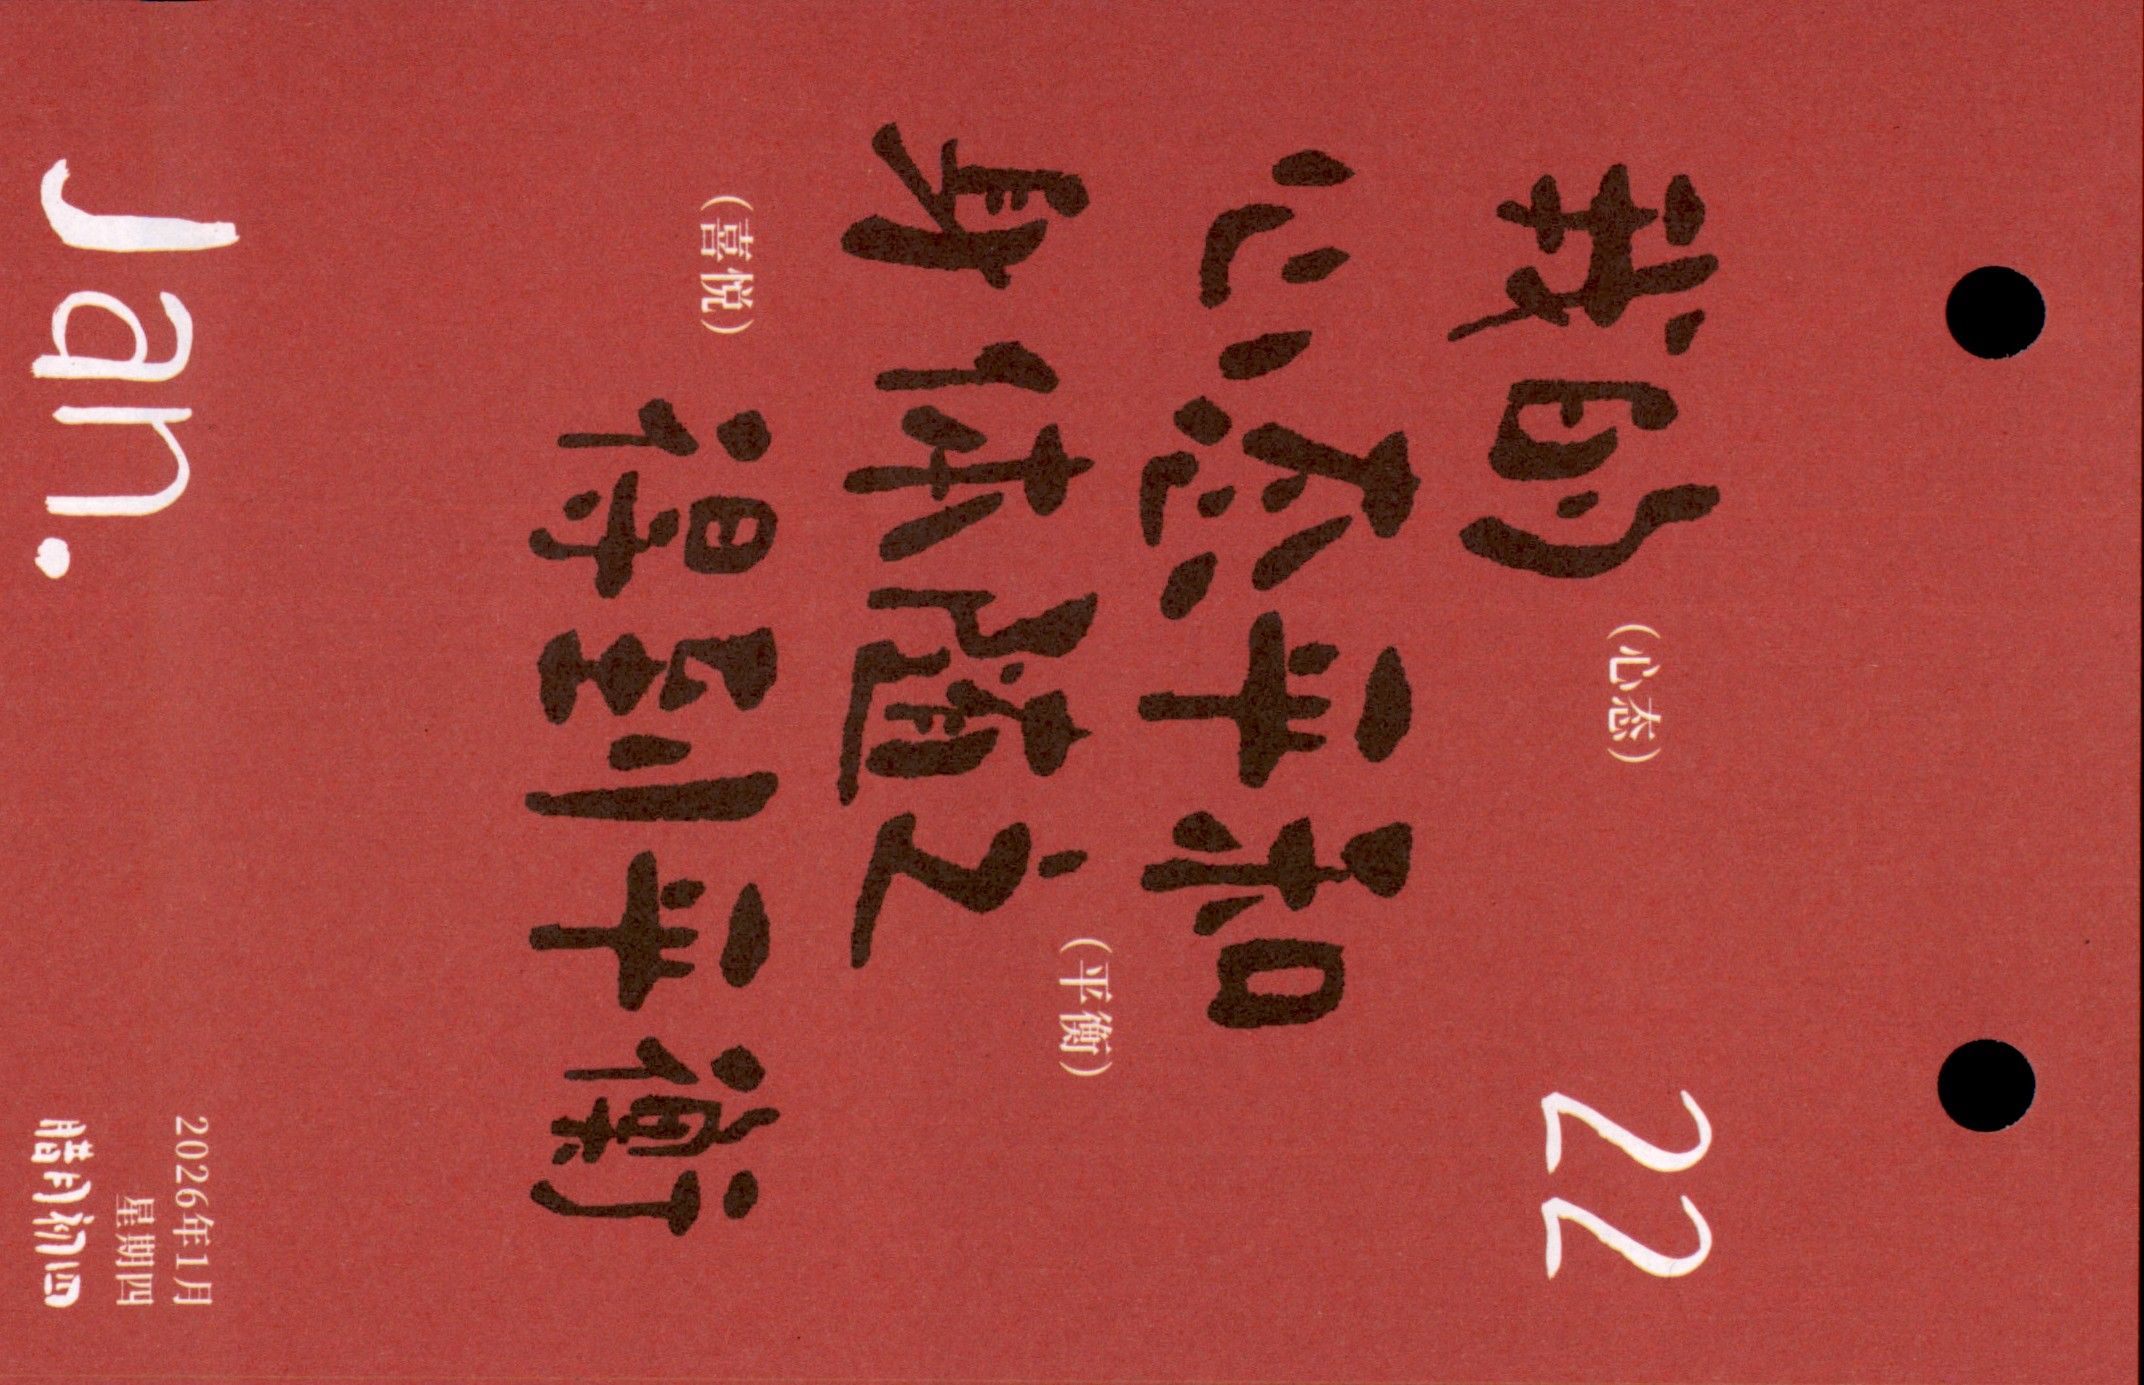 22
我的
(心态)
心态平和
身体随之
(平衡)
得到平衡
(喜悦)
Jan.
2026年1月
星期四
腊月初四